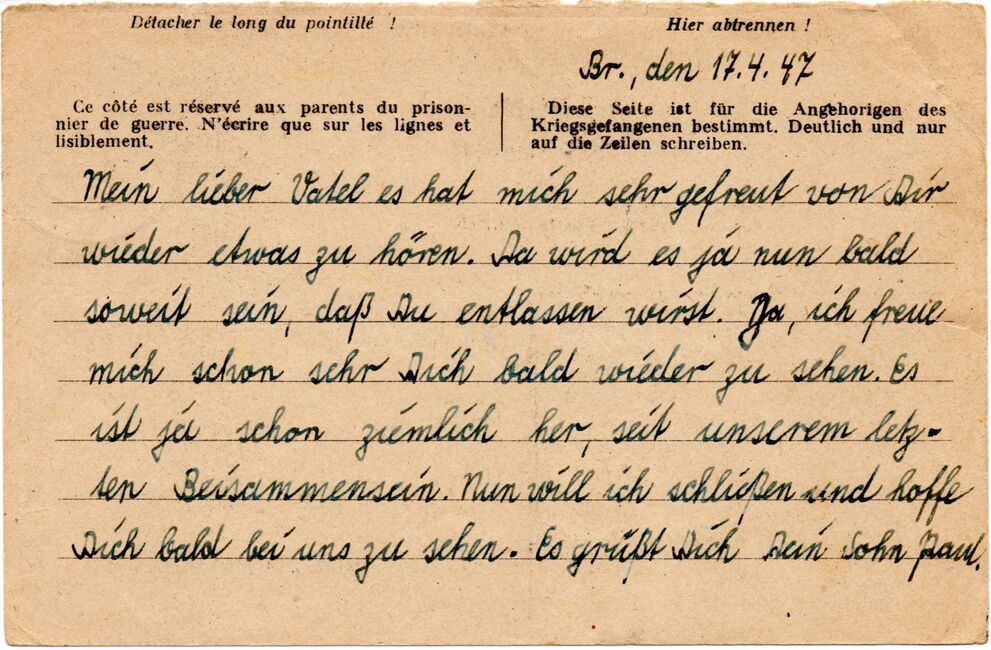 Détacher le long du pointillé !
Hier abtrennen !
Br., den 17.4.47
Ce côté est réservé aux parents du prison-
nier de guerre. N'écrire que sur les lignes et
lisiblement.
Diese Seite ist für die Angehorigen des
Kriegsgefangenen bestimmt. Deutlich und nur
auf die Zeilen schreiben.
Mein lieber Vatel es hat mich sehr gefreut von Dir
wieder etwas zu hören. Da wird es ja nun bald
soweit sein, daß Du entlassen wirst. Ja, ich freue
mich schon sehr Dich bald wieder zu sehen. Es
ist ja schon ziemlich her, seit unserem letz-
ten Beisammensein. Nun will ich schließen und hoffe
Dich bald bei uns zu sehen. Es grüßt Dich Dein Sohn Paul.